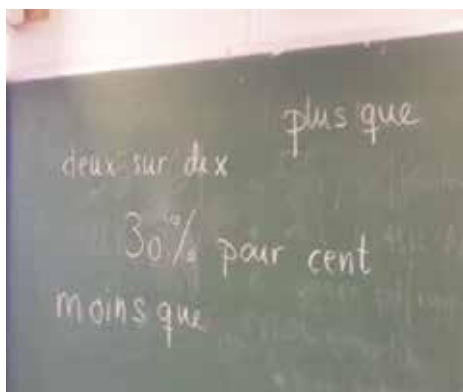 plus que
deux sur dix
30% pour cent
moins que